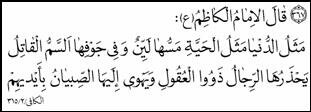 ٣٦٧ قَالَ الإِمَامُ الكَاظِمُ (ع):
مَثَلُ الدُّنيَا مَثَلُ الحَيَّةِ مَسُّهَا لَيِّنٌ وَفِي جَوفِهَا السَّمُّ القَاتِلُ
يَحذَرُهَا الرِّجَالُ ذَوُوا العُقُولِ وَيَهوِي إِلَيهَا الصِّبيَانُ بِأَيدِيهِم
الكافي: ٢/ ٣١٥